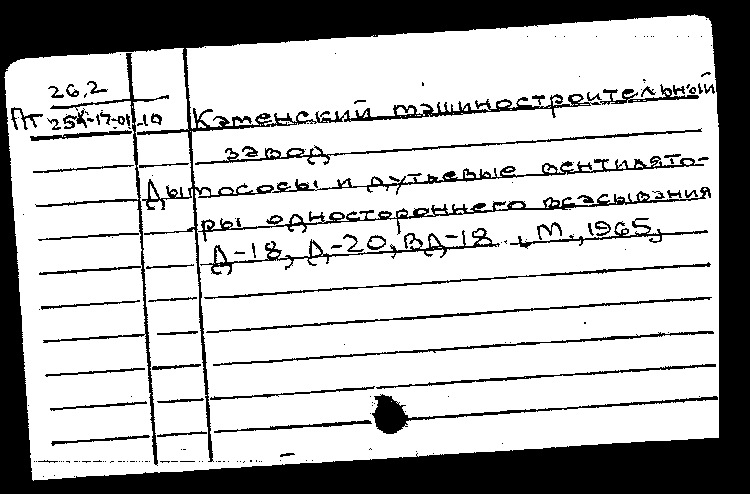 26.2
ПТ 25-17-01-10 Каменский машиностроительный
завод
Дымососы и дутьевые вентилято-
ры одностороннего всасывания
Д-18, Д-20, ВД-18 , М., 1965,